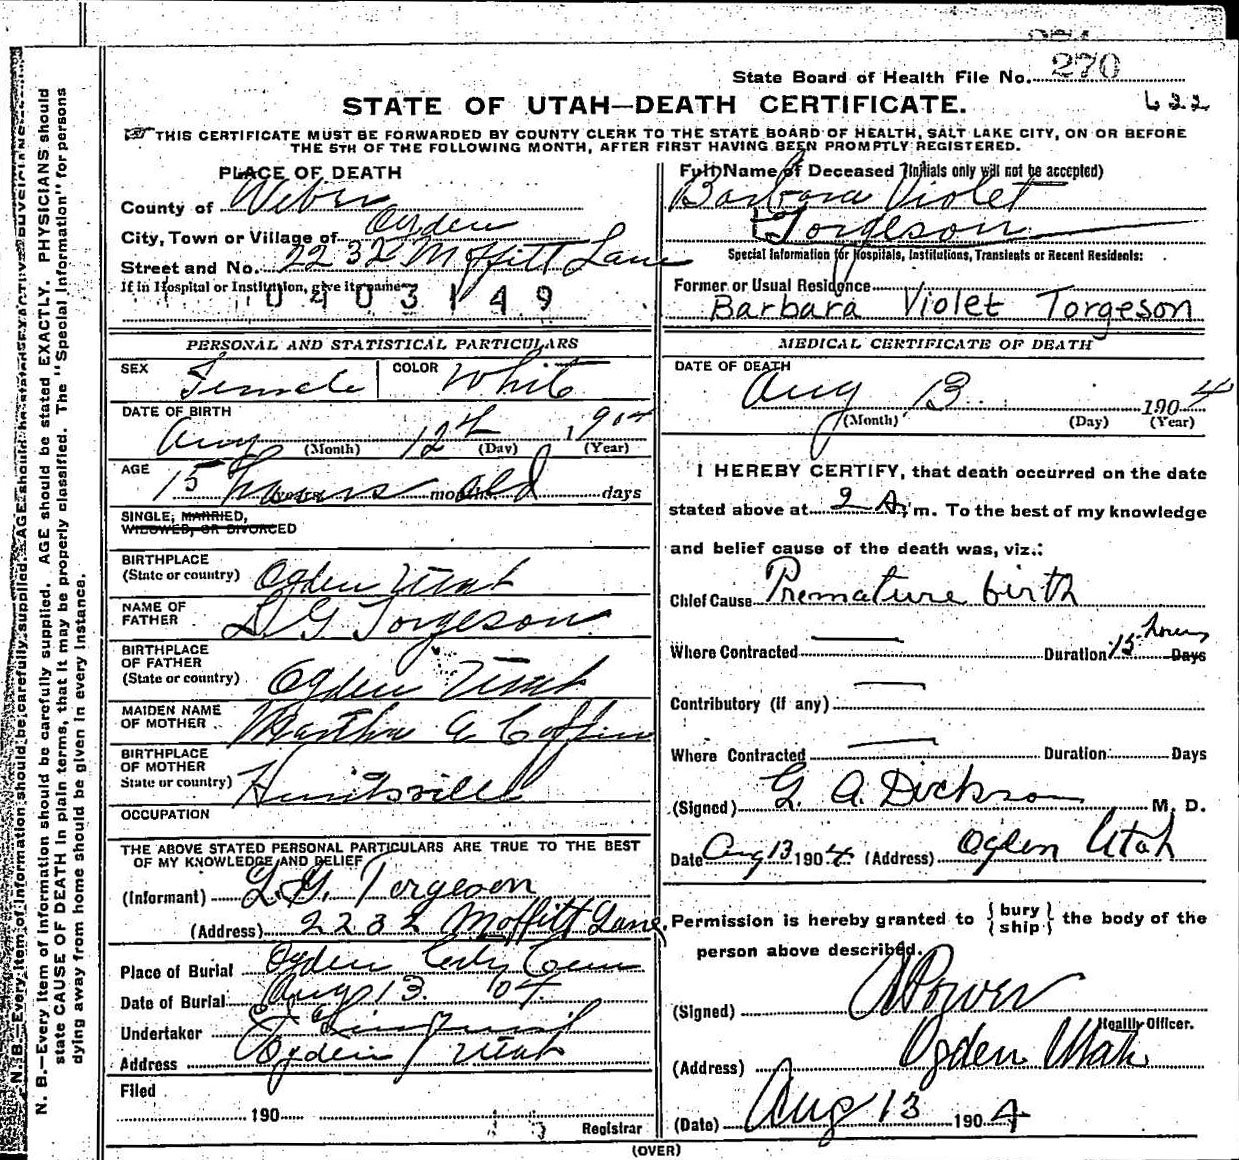 State Board of Health File No. 270
STATE OF UTAH—DEATH CERTIFICATE.
622
THIS CERTIFICATE MUST BE FORWARDED BY COUNTY CLERK TO THE STATE BOARD OF HEALTH, SALT LAKE CITY, ON OR BEFORE
THE 5TH OF THE FOLLOWING MONTH, AFTER FIRST HAVING BEEN PROMPTLY REGISTERED.
PLACE OF DEATH
County of Weber
City, Town or Village of Ogden
Street and No. 2232 Moffitt Lane
If in Hospital or Institution, give its name
0403149
Full Name of Deceased (Initials only will not be accepted)
Barbara Violet
Torgeson
Special Information for Hospitals, Institutions, Transients or Recent Residents:
Former or Usual Residence
Barbara Violet Torgeson
PERSONAL AND STATISTICAL PARTICULARS
SEX Female COLOR White
DATE OF BIRTH
Aug (Month) 12th (Day) 1904 (Year)
AGE
15 hours old years months days
SINGLE, MARRIED,
WIDOWED, OR DIVORCED
BIRTHPLACE
(State or country) Ogden Utah
NAME OF
FATHER L. G. Torgeson
BIRTHPLACE
OF FATHER
(State or country) Ogden Utah
MAIDEN NAME
OF MOTHER Martha A Coffin
BIRTHPLACE
OF MOTHER
State or country) Huntsville
OCCUPATION
THE ABOVE STATED PERSONAL PARTICULARS ARE TRUE TO THE BEST
OF MY KNOWLEDGE AND BELIEF
(Informant) L. G. Torgeson
(Address) 2232 Moffitt Lane.
Place of Burial Ogden City Cem
Date of Burial Aug 13. 04.
Undertaker
Address Ogden Utah
Filed
190
Registrar
MEDICAL CERTIFICATE OF DEATH
DATE OF DEATH
Aug 13 1904
(Month) (Day) (Year)
I HEREBY CERTIFY, that death occurred on the date
stated above at 2 A. m. To the best of my knowledge
and belief cause of the death was, viz.:
Chief Cause Premature birth
Where Contracted — Duration 15 hours Days
Contributory (if any) —
Where Contracted — Duration Days
(Signed) G. A. Dickson M. D.
Date Aug 13 1904 (Address) Ogden Utah
Permission is hereby granted to {bury ship} the body of the
person above described.
(Signed) Power
Health Officer.
(Address) Ogden Utah
(Date) Aug 13 1904
(OVER)
N. B.—Every item of information should be carefully supplied. AGE should be stated EXACTLY. PHYSICIANS should
state CAUSE OF DEATH in plain terms, that it may be properly classified. The "Special Information" for persons
dying away from home should be given in every instance.